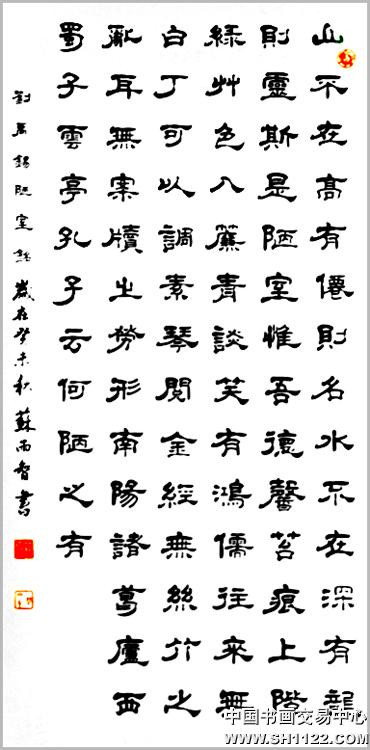 山不在高有僊則名水不在深有龍
則靈斯是陋室惟吾德馨苔痕上階
綠艸色入簾青談笑有鴻儒往來無
白丁可以調素琴閱金經無絲竹之
亂耳無案牘之勞形南陽諸葛廬西
蜀子雲亭孔子云何陋之有
劉禹錫陋室銘歲在癸未秋蘇西智書
中国书画交易中心
www.SH1122.com